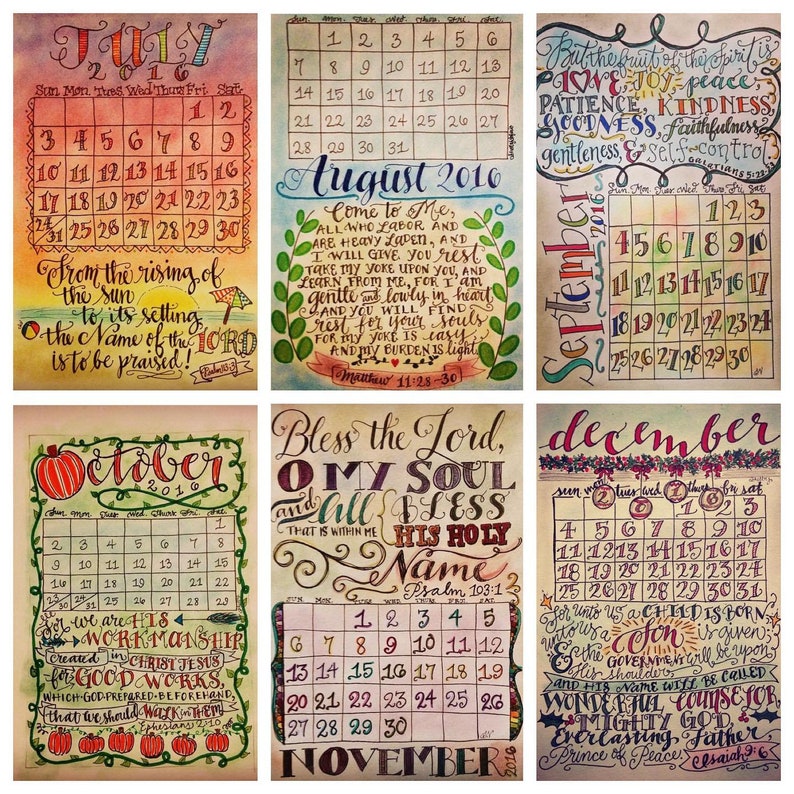 JULY
2016
Sun. Mon. Tues. Wed. Thurs. Fri. Sat.
1 2
3 4 5 6 7 8 9
10 11 12 13 14 15 16
17 18 19 20 21 22 23
24/31 25 26 27 28 29 30
From the rising of
the sun
to its setting
the Name of the LORD
is to be praised!
Psalm 113:3
Sun. Mon. Tue. Wed. Thu. Fri. Sat.
1 2 3 4 5 6
7 8 9 10 11 12 13
14 15 16 17 18 19 20
21 22 23 24 25 26 27
28 29 30 31
August 2016
Come to Me,
ALL WHO LABOR AND
ARE HEAVY LADEN, AND
I WILL GIVE YOU REST
TAKE MY YOKE UPON YOU, AND
LEARN FROM ME, FOR I AM
gentle and lowly in heart
AND YOU WILL FIND
rest for your souls
FOR MY YOKE IS easy
AND MY BURDEN IS light.
Matthew 11:28-30
But the fruit of the Spirit is
LOVE, JOY, peace,
PATIENCE, KINDNESS,
GOODNESS, faithfulness,
gentleness, & self-control
GALATIANS 5:22-23
September
2016
Sun. Mon. Tues. Wed. Thurs. Fri. Sat.
1 2 3
4 5 6 7 8 9 10
11 12 13 14 15 16 17
18 19 20 21 22 23 24
25 26 27 28 29 30
October
2016
Sun. Mon. Tues. Wed. Thurs. Fri. Sat.
1
2 3 4 5 6 7 8
9 10 11 12 13 14 15
16 17 18 19 20 21 22
23/30 24/31 25 26 27 28 29
For we are HIS
WORKMANSHIP
created in CHRIST JESUS
for GOOD WORKS,
WHICH GOD PREPARED BEFOREHAND,
that we should WALK in THEM
Ephesians 2:10
Bless the Lord,
O MY SOUL
and all
THAT IS WITHIN ME
BLESS
HIS HOLY
Name
Psalm 103:1
SUN. MON. TUES. WED. THURS. FRI. SAT.
1 2 3 4 5
6 7 8 9 10 11 12
13 14 15 16 17 18 19
20 21 22 23 24 25 26
27 28 29 30
NOVEMBER
2016
december
2016
sun. mon. tues. wed. thurs. fri. sat.
1 2 3
4 5 6 7 8 9 10
11 12 13 14 15 16 17
18 19 20 21 22 23 24
25 26 27 28 29 30 31
For unto us a CHILD IS BORN,
unto us a Son is given;
& the GOVERNMENT will be upon
His shoulder
AND HIS NAME WILL BE CALLED
WONDERFUL COUNSELOR
MIGHTY GOD,
Everlasting Father,
Prince of Peace.
Isaiah 9:6